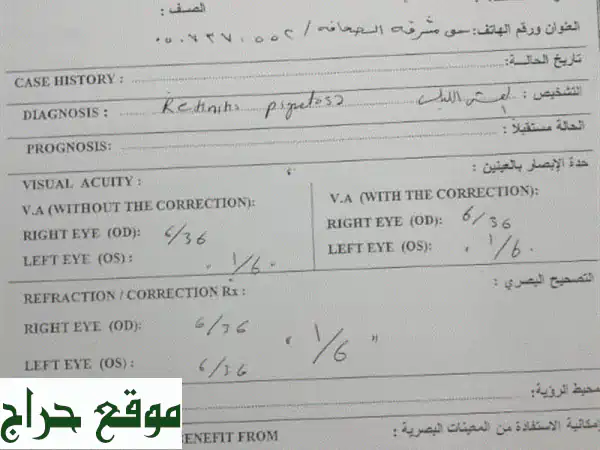 الصف :
العنوان ورقم الهاتف: مشرفه الصحافه / ٠٥٠٦٣٧٠٥٥٢
تاريخ الحالة:
CASE HISTORY :
DIAGNOSIS : Retinitis pigmetosa التشخيص :
PROGNOSIS: الحالة مستقبلاً :
حدة الإبصار بالعينين :
VISUAL ACUITY :
V.A (WITHOUT THE CORRECTION): V.A (WITH THE CORRECTION):
RIGHT EYE (OD): 6/36 RIGHT EYE (OD): 6/36
LEFT EYE (OS) : 1/6 LEFT EYE (OS): 1/6
التصحيح البصري :
REFRACTION / CORRECTION Rx :
RIGHT EYE (OD): 6/36 " 1/6 "
LEFT EYE (OS) : 6/36
محيط الرؤية:
إمكانية الاستفادة من المعينات البصرية :
BENEFIT FROM
موقع حراج